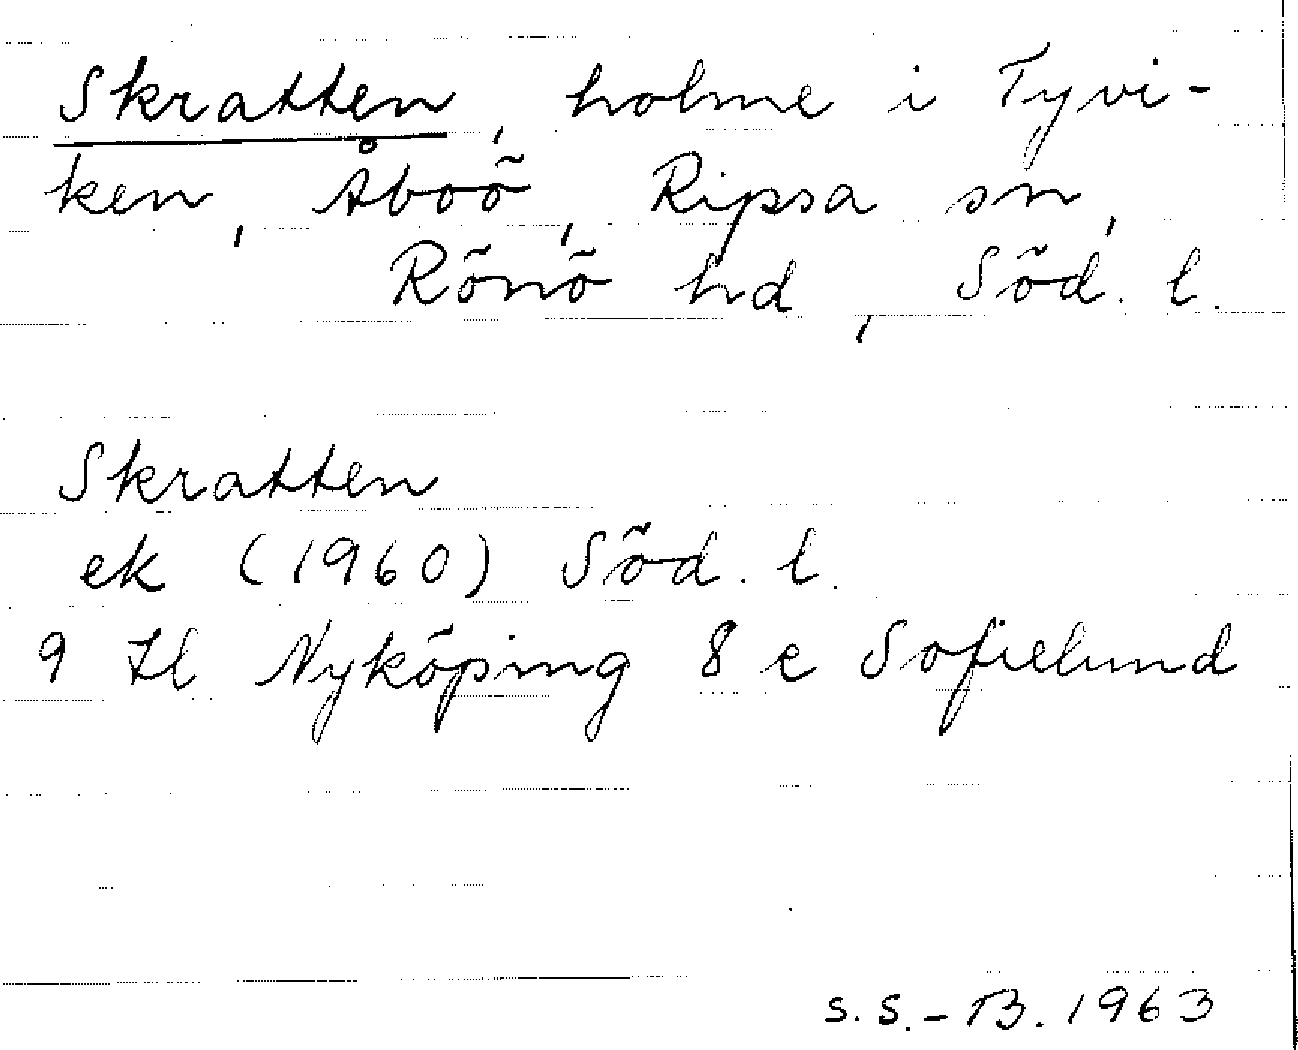 Skratten, holme i Tyvi-
ken, Åboö, Ripsa sn,
Rönö hd, Söd. l.
Skratten
ek (1960) Söd. l.
9 Il Nyköping 8 e Sofielund
S.S.-B. 1963